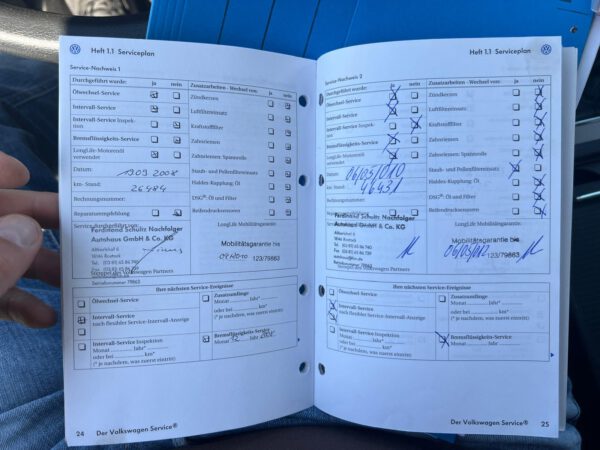 Heft 1.1 Serviceplan
Service-Nachweis 1
Durchgeführt wurde: ja nein
Zusatzarbeiten - Wechsel von: ja nein
Ölwechsel-Service
Zündkerzen
Intervall-Service
Luftfiltereinsatz
Intervall-Service Inspektion
Kraftstofffilter
Bremsflüssigkeits-Service
Zahnriemen
LongLife-Motorenöl verwendet
Zahnriemen: Spannrolle
Datum:
Staub- und Pollenfiltereinsatz
km-Stand: 26484
Haldex-Kupplung: Öl
Rechnungsnummer:
DSG®: Öl und Filter
Reparaturempfehlung
Reifendruckssensoren
Ferdinand Schultz Nachfolger
Autohaus GmbH & Co. KG
LongLife Mobilitätsgarantie
Mobilitätsgarantie bis
123/79863
Stempel des Volkswagen Partners
Betriebsnummer 79863
Ihre nächsten Service-Ereignisse
Ölwechsel-Service
Zusatzumfänge
Monat Jahr*
oder bei km*
(* je nachdem, was zuerst eintritt)
Intervall-Service
nach flexibler Service-Intervall-Anzeige
Intervall-Service Inspektion
Monat Jahr*
oder bei km*
(* je nachdem, was zuerst eintritt)
Bremsflüssigkeits-Service
Monat Jahr
24 Der Volkswagen Service®
Heft 1.1 Serviceplan
Service-Nachweis 2
Durchgeführt wurde: ja nein
Zusatzarbeiten - Wechsel von: ja nein
Ölwechsel-Service
Zündkerzen
Intervall-Service
Luftfiltereinsatz
Intervall-Service Inspektion
Kraftstofffilter
Bremsflüssigkeits-Service
Zahnriemen
LongLife-Motorenöl verwendet
Zahnriemen: Spannrolle
Datum:
Staub- und Pollenfiltereinsatz
km-Stand:
Haldex-Kupplung: Öl
Rechnungsnummer:
DSG®: Öl und Filter
Reparaturempfehlung
Reifendruckssensoren
Ferdinand Schultz Nachfolger
Autohaus GmbH & Co. KG
LongLife Mobilitätsgarantie
Mobilitätsgarantie bis
123/79863
Stempel des Volkswagen Partners
Ihre nächsten Service-Ereignisse
Ölwechsel-Service
Zusatzumfänge
Monat Jahr*
oder bei km*
(* je nachdem, was zuerst eintritt)
Intervall-Service
nach flexibler Service-Intervall-Anzeige
Intervall-Service Inspektion
Monat Jahr*
oder bei km*
(* je nachdem, was zuerst eintritt)
Bremsflüssigkeits-Service
Monat Jahr
Der Volkswagen Service® 25